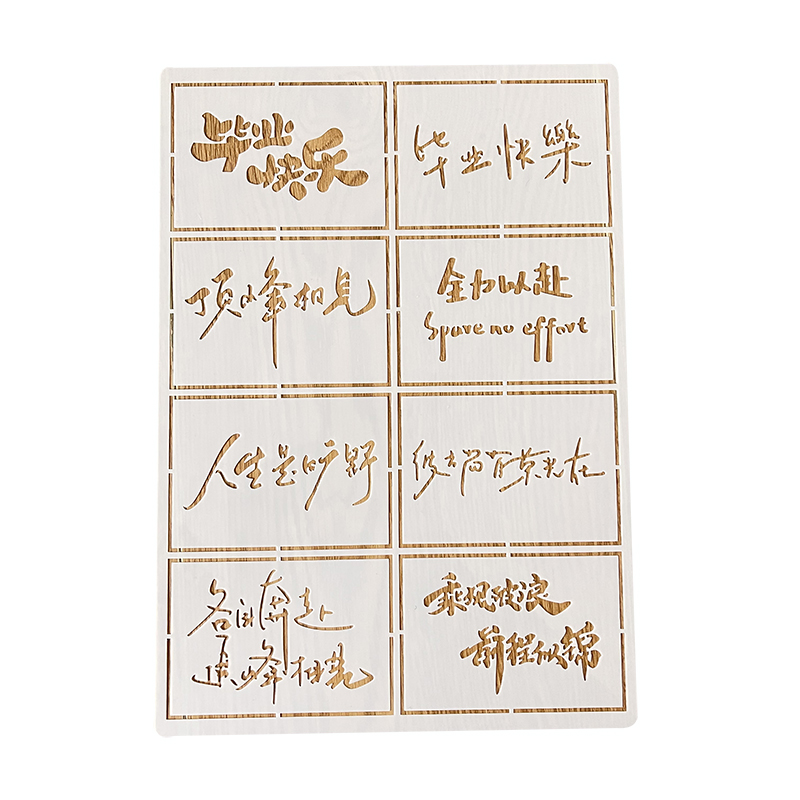 毕业
快乐
毕业快樂
顶峰相见
全力以赴
Spare no effort
人生是旷野
彼方尚有荣光在
各自奔赴
峰相见
乘风破浪
前程似锦